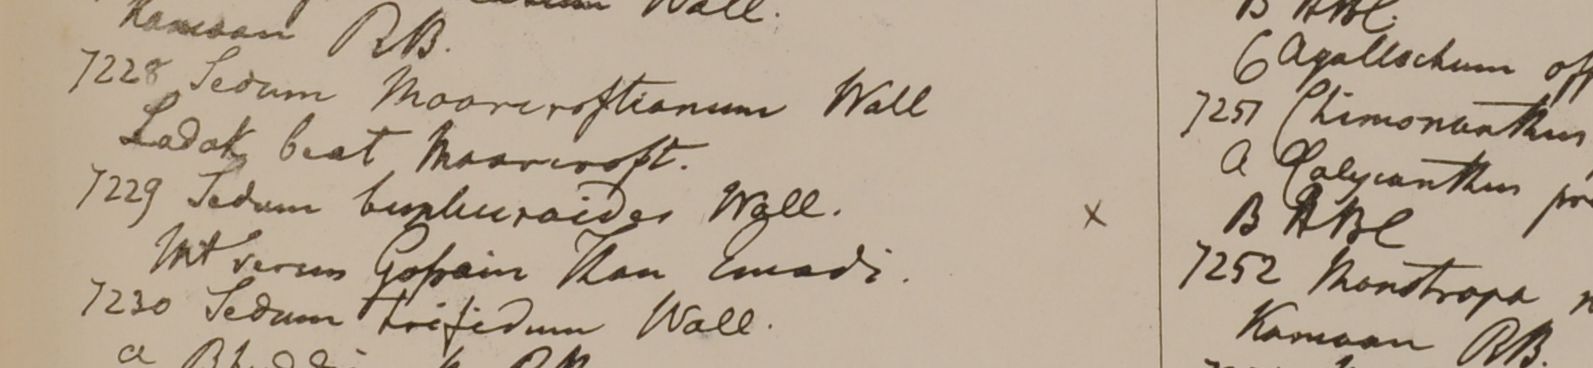 Wall.
Kamoan RB.
7228 Sedum Moorcroftianum Wall
Ladak beat Moorcroft.
7229 Sedum bupluroides Wall.
Mt versus Gossain Than Emadi.
x
7230 Sedum trifidum Wall.
a
B HBC.
6 Agallochum off
7251 Chimonanthus
a Calycanthus pr
B HBC
7252 Monotropa
Kamoan RB.